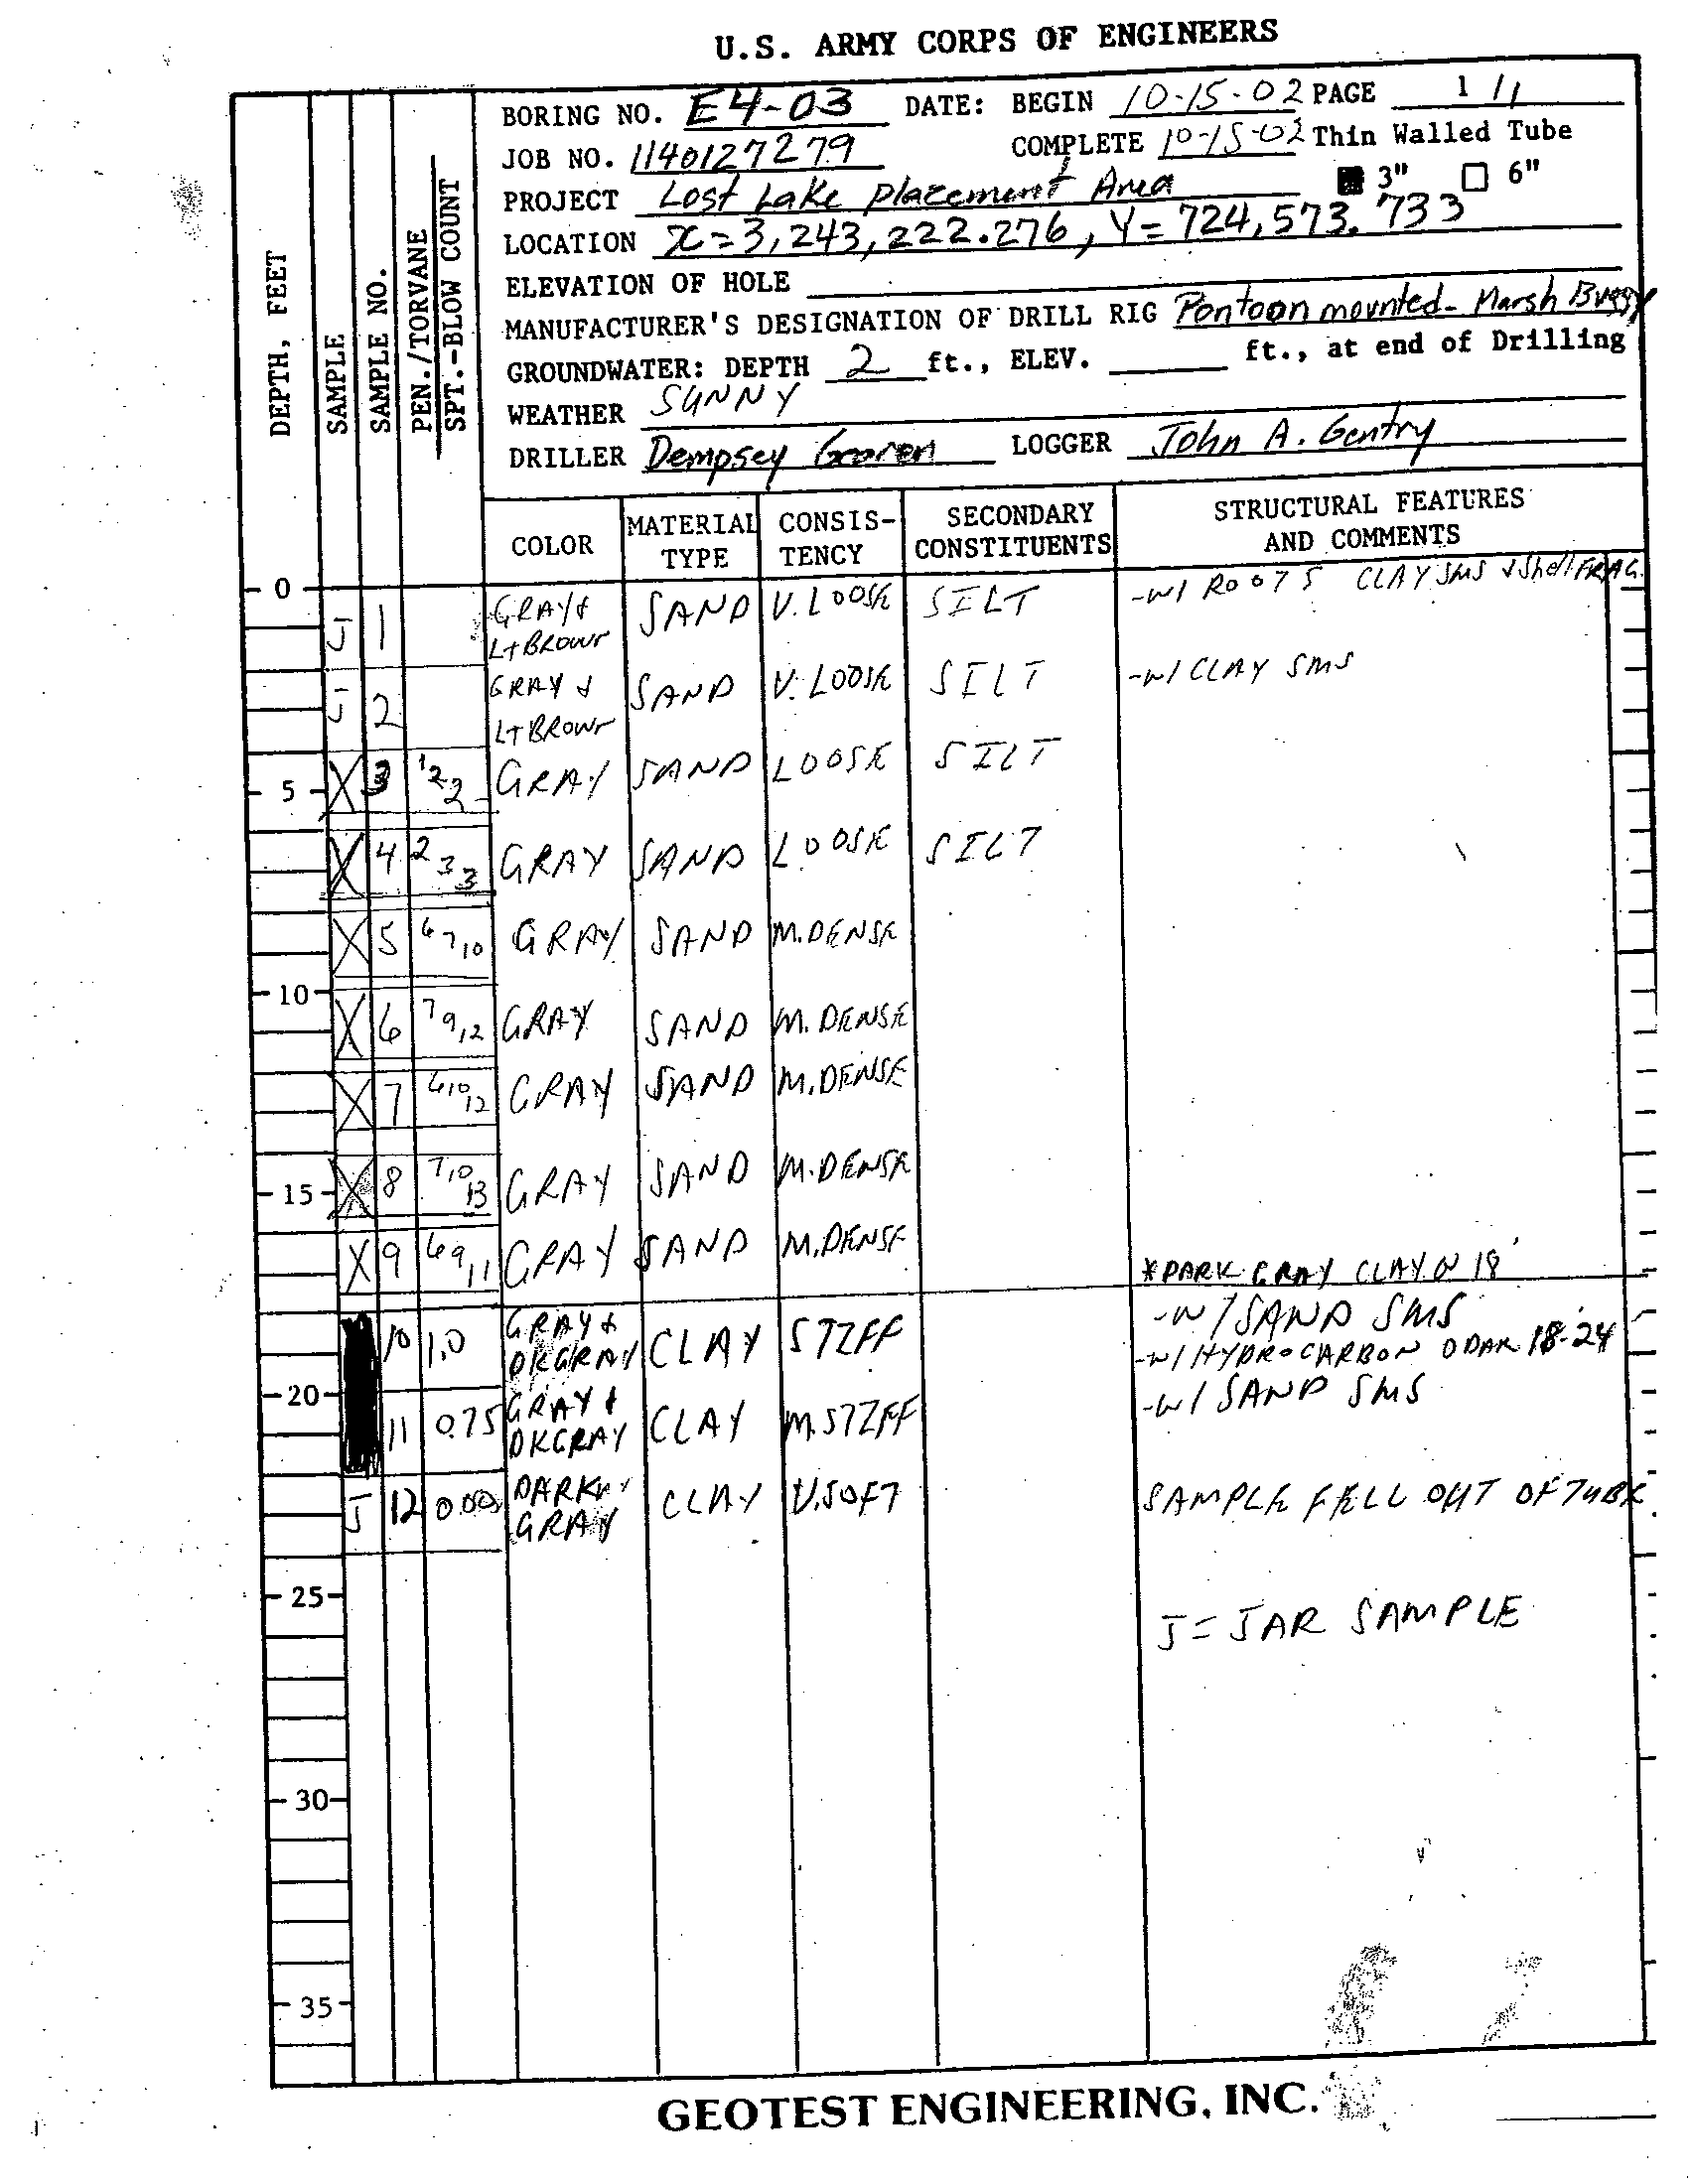 U.S. ARMY CORPS OF ENGINEERS
BORING NO. E4-03 DATE: BEGIN 10-15-02 PAGE 1/1
JOB NO. 1140127279 COMPLETE 10-15-02 Thin Walled Tube
PROJECT Lost Lake Placement Area 3" 6"
LOCATION X=3,243,222.276, Y=724,573.733
ELEVATION OF HOLE
MANUFACTURER'S DESIGNATION OF DRILL RIG Pontoon mounted- Marsh Buggy
GROUNDWATER: DEPTH 2 ft., ELEV. ft., at end of Drilling
WEATHER SUNNY
DRILLER Dempsey LOGGER John A. Gentry
DEPTH, FEET
SAMPLE
SAMPLE NO.
PEN./TORVANE
SPT.-BLOW COUNT
COLOR MATERIAL TYPE CONSIS-TENCY SECONDARY CONSTITUENTS STRUCTURAL FEATURES AND COMMENTS
0
J 1 GRAY & LT BROWN SAND V. LOOSE SILT -W/ ROOTS CLAY SMS & Shell FRAG.
J 2 GRAY & LT BROWN SAND V. LOOSE SILT -W/ CLAY SMS
5 X 3 1 2 2 GRAY SAND LOOSE SILT
X 4 2 3 3 GRAY SAND LOOSE SILT
X 5 6 7 10 GRAY SAND M.DENSE
10
X 6 7 9 12 GRAY SAND M. DENSE
X 7 6 10 12 GRAY SAND M.DENSE
15 X 8 7 10 13 GRAY SAND M.DENSE
X 9 6 9 11 GRAY SAND M.DENSE
*DARK GRAY CLAY @ 18'
10 1.0 GRAY & DKGRAY CLAY STIFF -W/ SAND SMS
-W/ HYDROCARBON ODAR 18-24
20
11 0.75 GRAY & DKGRAY CLAY M.STIFF -W/ SAND SMS
J 12 0.00 DARK GRAY CLAY V.SOFT SAMPLE FELL OUT OF TUBE
25
J = JAR SAMPLE
30
35
GEOTEST ENGINEERING, INC.